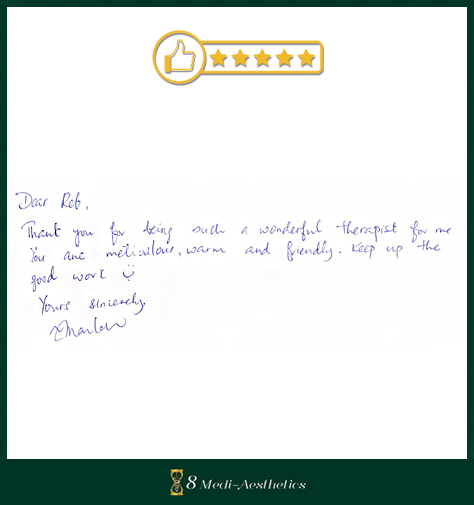 Dear Reb,
Thank you for being such a wonderful therapist for me
You are meticulous, warm and friendly. Keep up the
good work
Yours sincerely,
8 Medi-Aesthetics